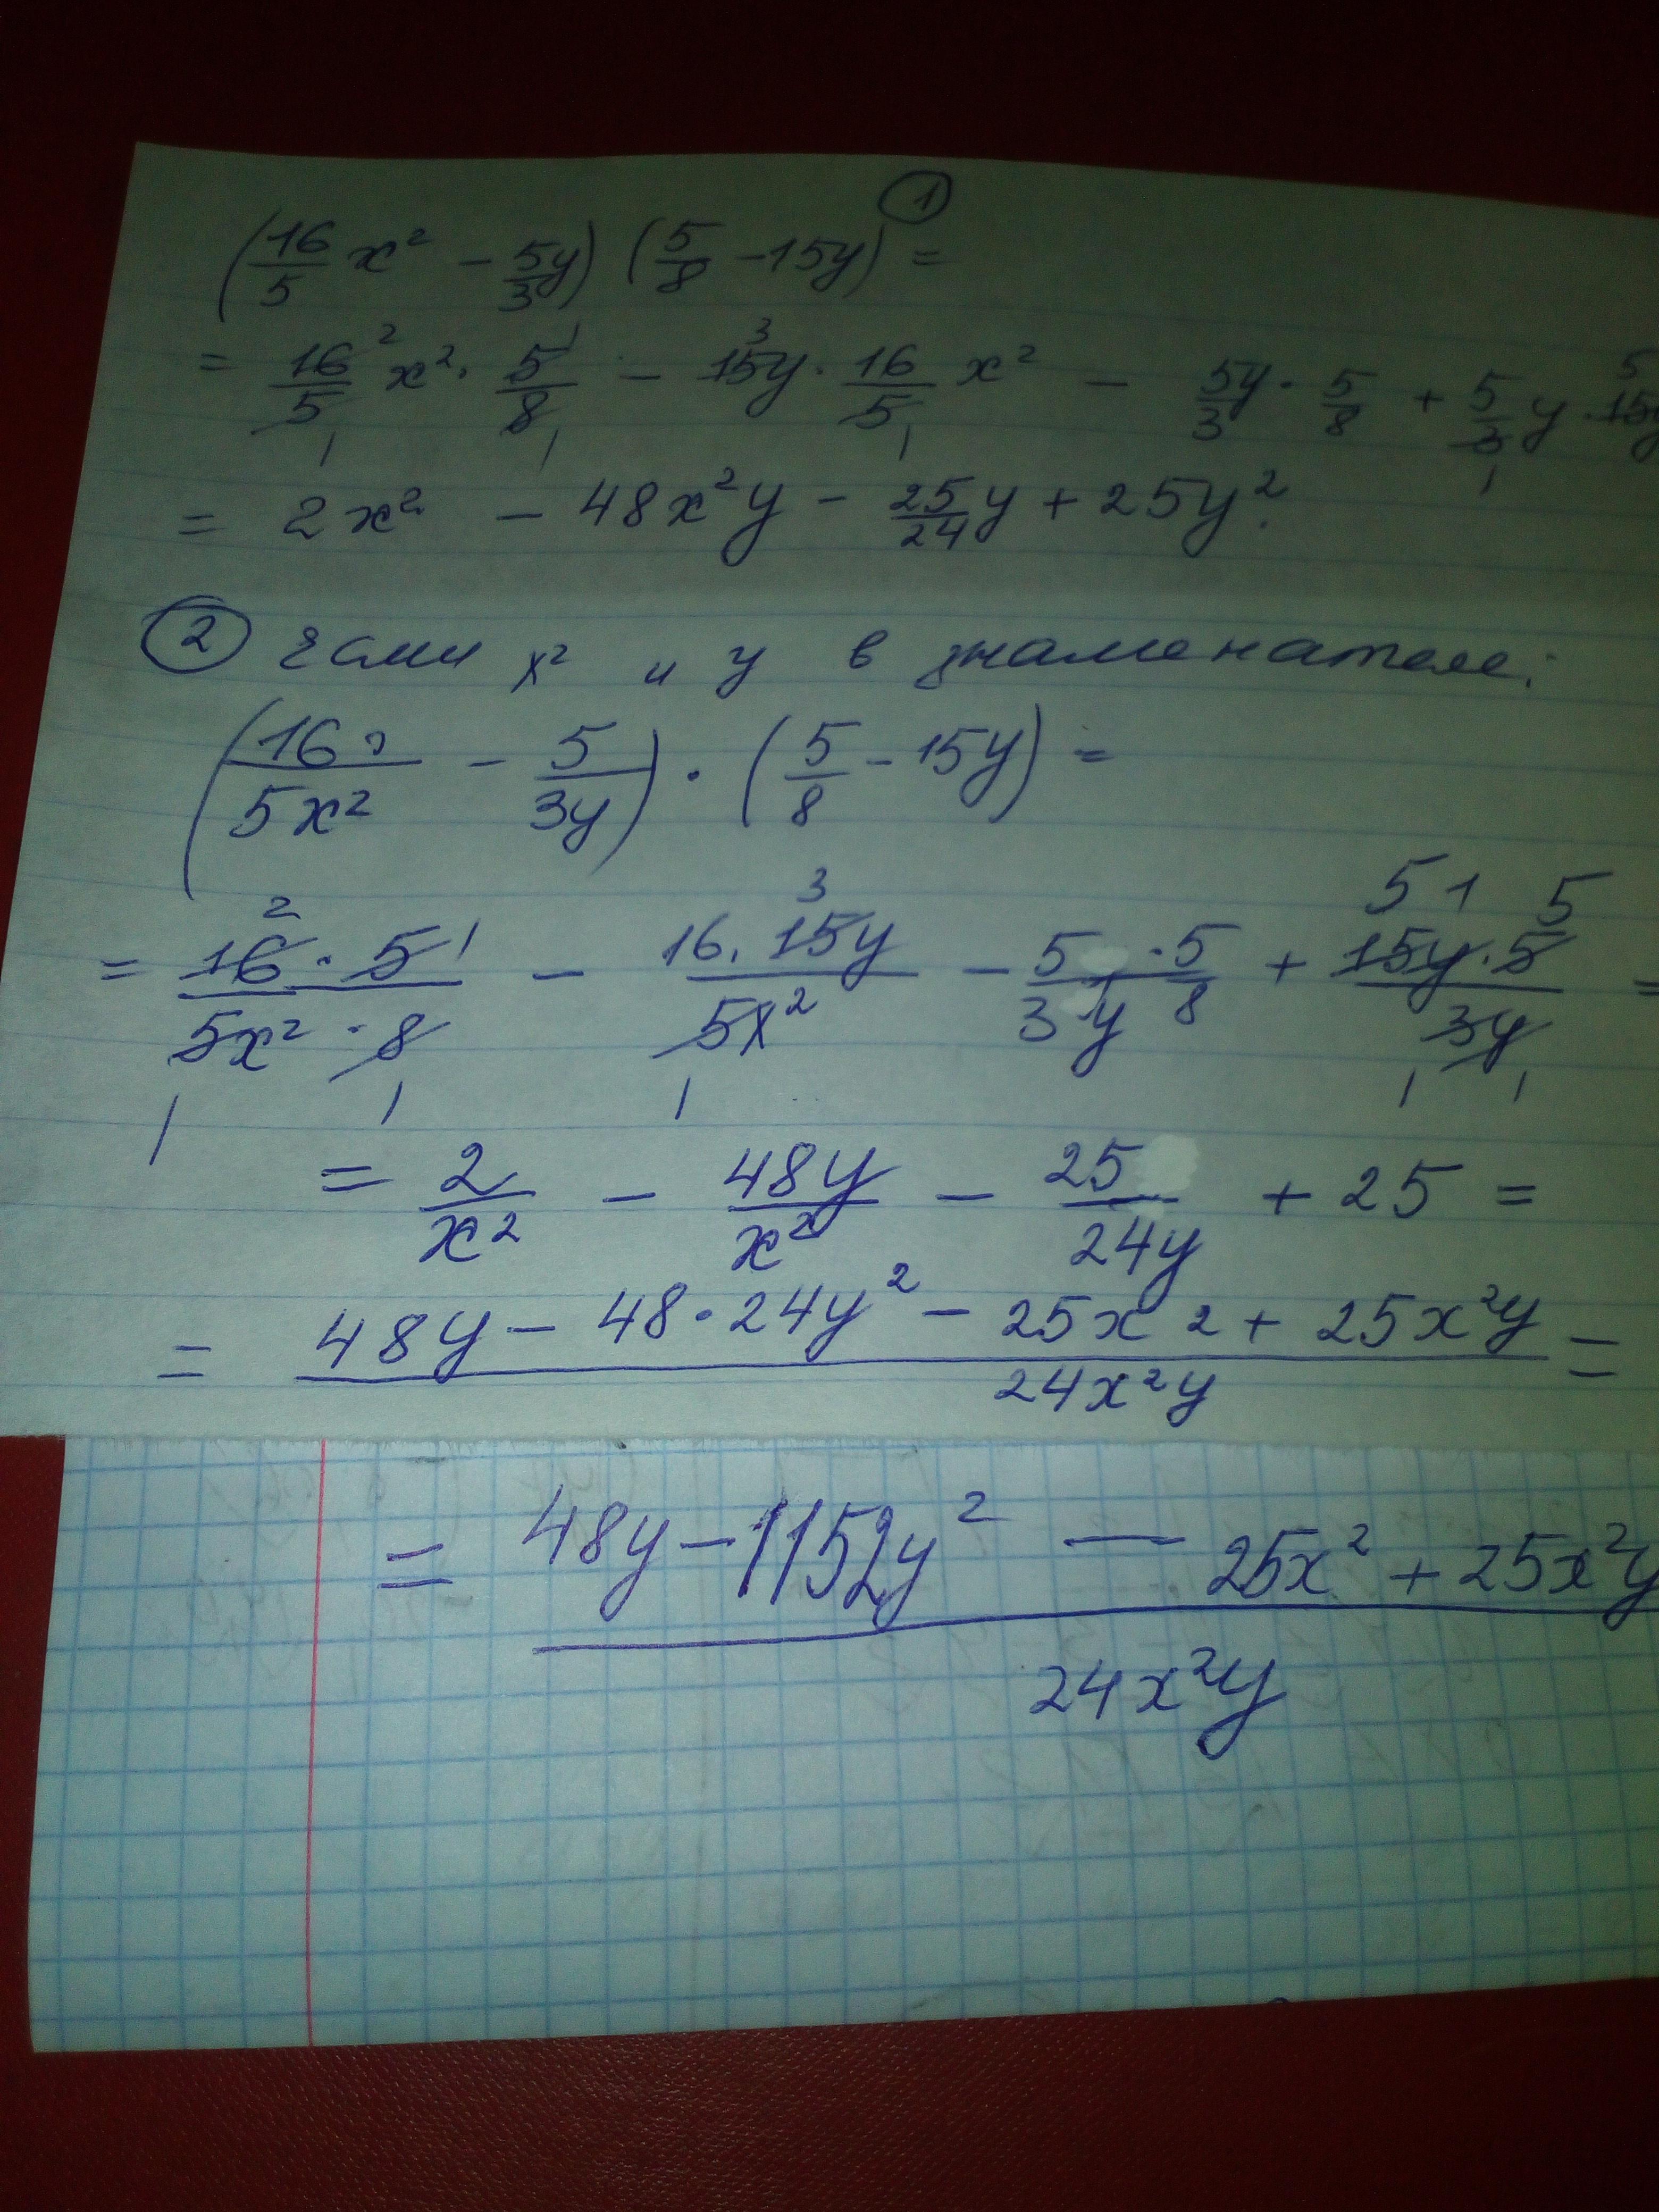 1
(16/5 x² - 5y/3) (5/8 - 15y) =
= 16/5 ² x² · 5/8 ¹ - 15y ³ · 16/5 x² - 5y/3 · 5/8 + 5/3 y · 15y 5
1 1 1 1
= 2x² - 48x²y - 25/24 y + 25y².
2 Если x² и y в знаменателе:
(16/5x² - 5/3y) · (5/8 - 15y) =
2 1 3 5 1 5
= 16 · 5/5x² · 8 - 16 · 15y/5x² - 5 · 5/3y 8 + 15y · 5/3y =
1 1 1 1 1
= 2/x² - 48y/x² - 25/24y + 25 =
= 48y - 48 · 24y² - 25x2 + 25x²y/24x²y =
= 48y - 1152y² - 25x² + 25x²y/24x²y